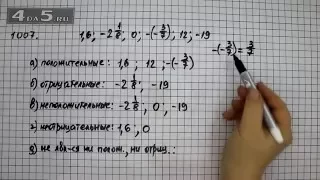 4АО5.RU
1007. 1,6; -2 1/8; 0; -(-3/7); 12; -19
-(-3/7) = 3/7
а) положительные: 1,6; 12; -(-3/7)
б) отрицательные: -2 1/8; -19
в) неположительные: -2 1/8; 0, -19
г) неотрицательные: 1,6; 0
д) не явл-ся ни полож., ни отриц.: